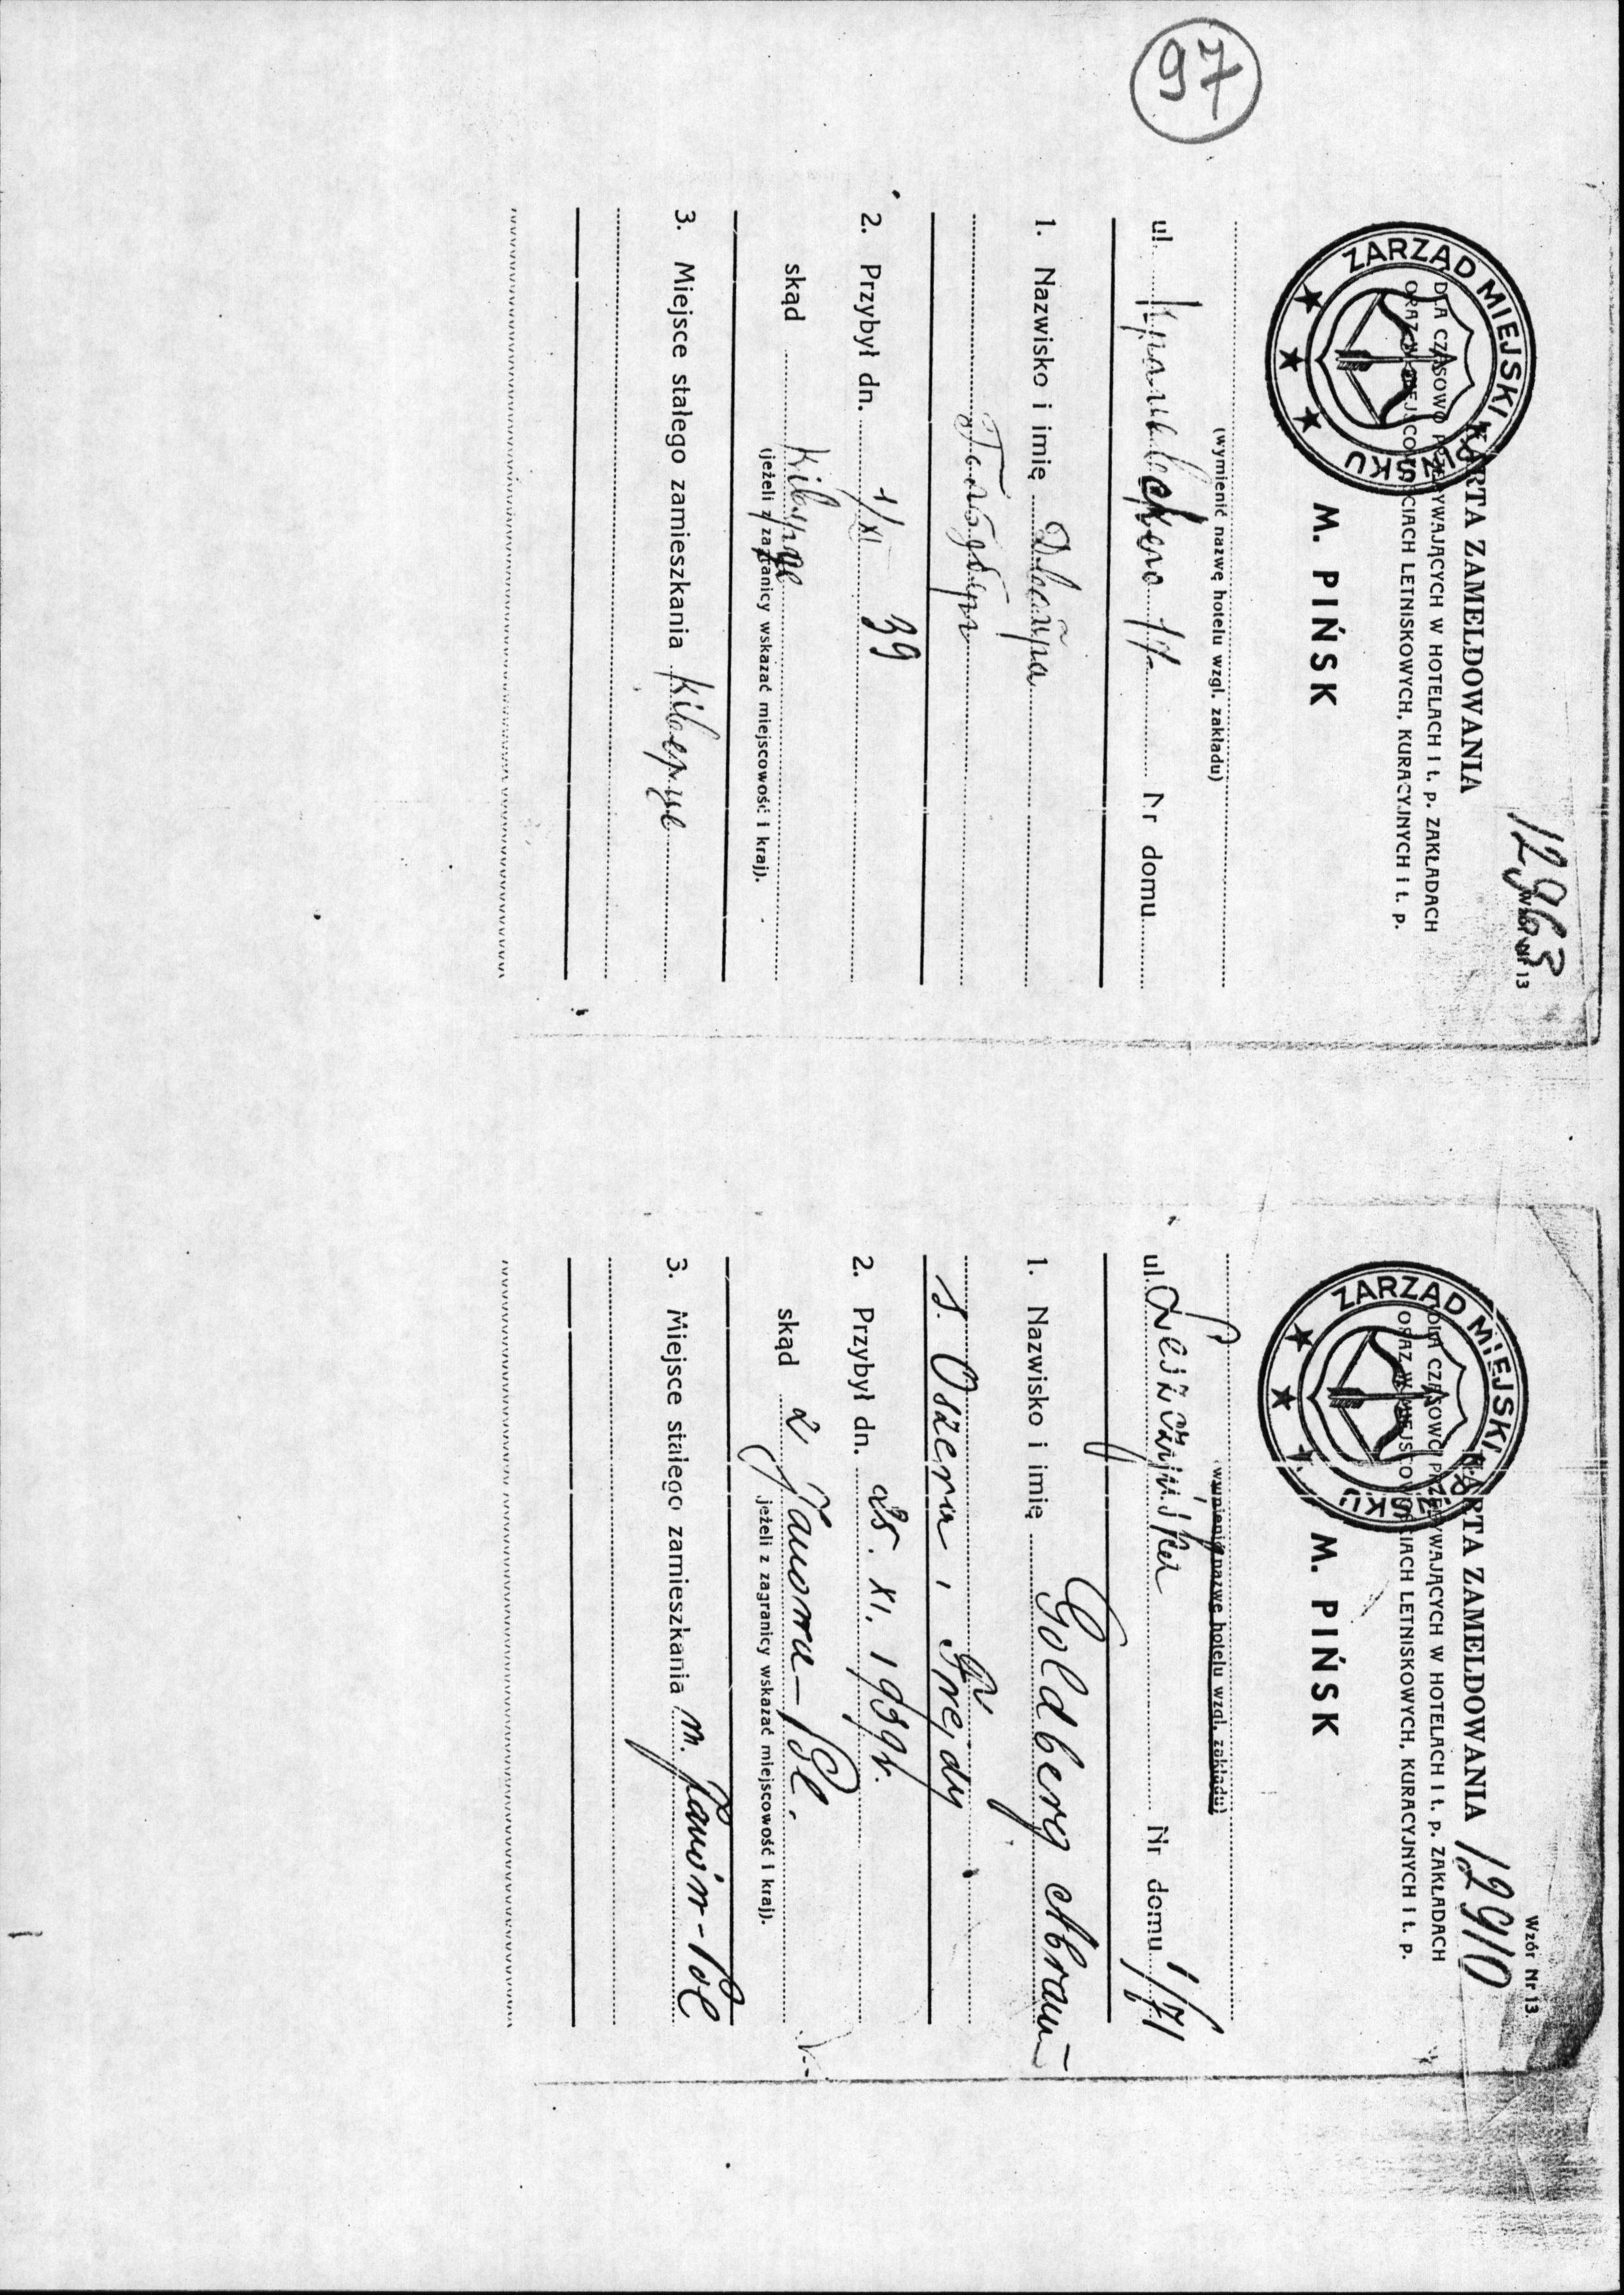 97
12963
Wzór Nr 13
KARTA ZAMELDOWANIA
DLA CZASOWO PRZEBYWAJĄCYCH W HOTELACH I t. p. ZAKŁADACH
ORAZ W MIEJSCOWOŚCIACH LETNISKOWYCH, KURACYJNYCH I t. p.
ZARZĄD MIEJSKI W PIŃSKU
M. PIŃSK
(wymienić nazwę hotelu wzgl. zakładu)
ul. Nr domu
1. Nazwisko i imię
2. Przybył dn. 1/XI 39
skąd
(jeżeli z zagranicy wskazać miejscowość i kraj).
3. Miejsce stałego zamieszkania
Wzór Nr 13
KARTA ZAMELDOWANIA 12910
DLA CZASOWO PRZEBYWAJĄCYCH W HOTELACH I t. p. ZAKŁADACH
ORAZ W MIEJSCOWOŚCIACH LETNISKOWYCH, KURACYJNYCH I t. p.
ZARZĄD MIEJSKI W PIŃSKU
M. PIŃSK
(wymienić nazwę hotelu wzgl. zakładu)
ul. Leszczyńska Nr domu 1/71
1. Nazwisko i imię Goldberg Abram
s. Oszera i Frejdy
2. Przybył dn. 25. XI. 1939r.
skąd z Janowa-Pol.
(jeżeli z zagranicy wskazać miejscowość i kraj).
3. Miejsce stałego zamieszkania m. Janów-Pol